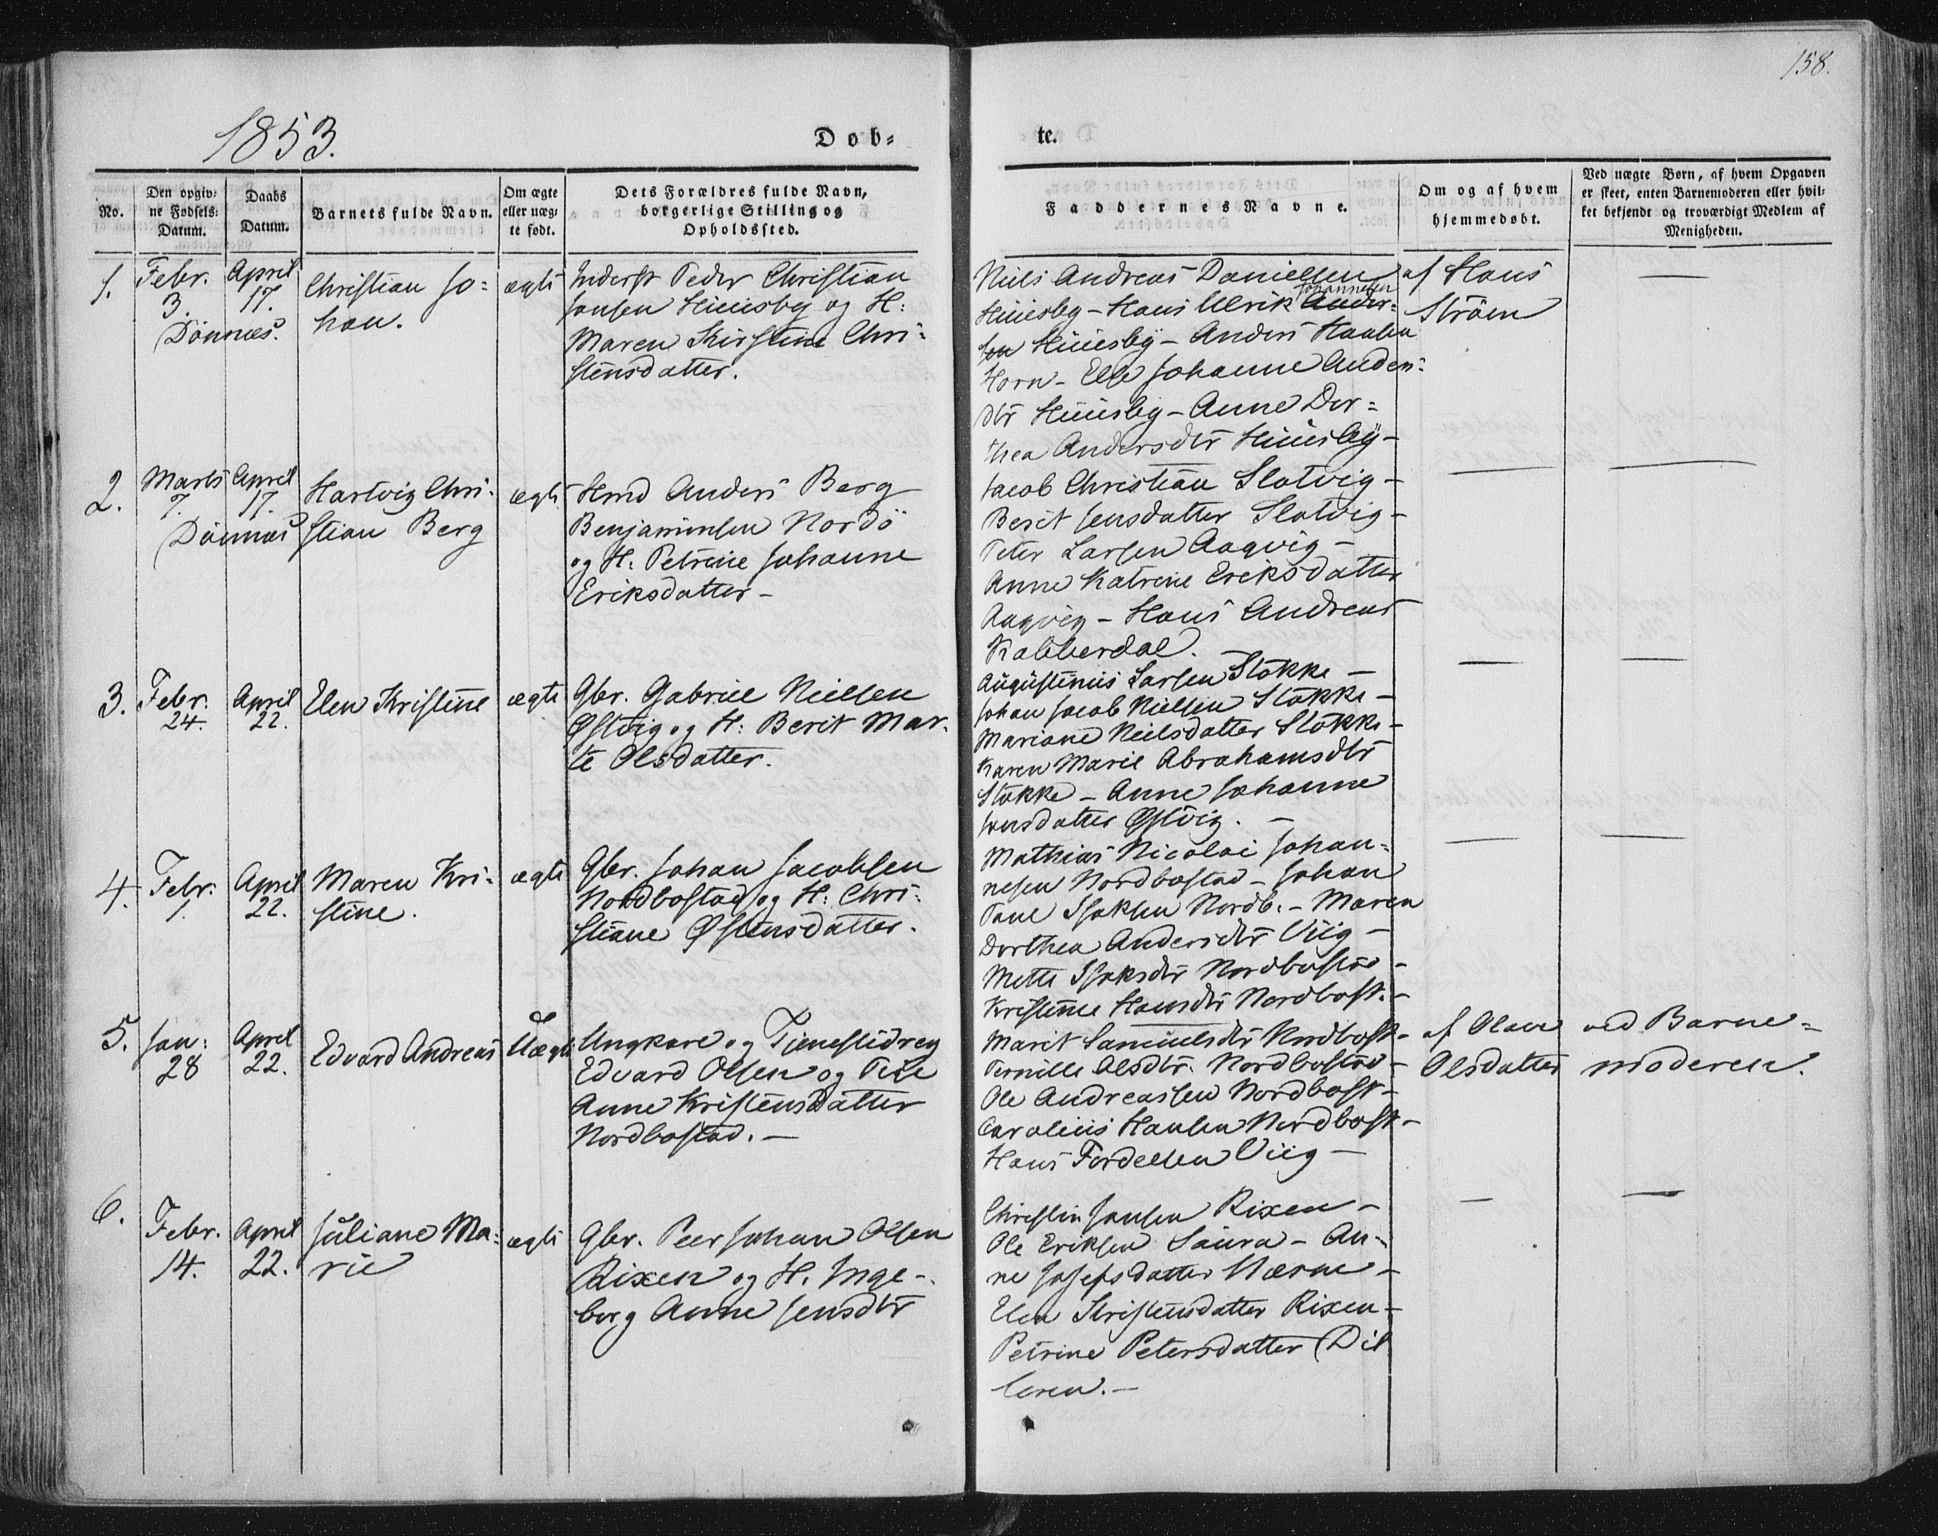 158.
1853.
Døb=
te.
No.
Den opgiv=
ne Fødsels=
Datum.
Daabs
Datum.
Barnets fulde Navn.
Om ægte
eller uæg=
te født.
Dets Forældres fulde Navn,
borgerlige Stilling og
Opholdssted.
Faddernes Navne.
Om og af hvem
hjemmedøbt.
Ved uægte Børn, af hvem Opgaven
er skeet, enten Barnemoderen eller hvil=
ket bekjendt og troværdigt Medlem af
Menigheden.
1.
Febr.
3.
Dönnæs.
April
17.
Christian Jo=
han.
ægte
Inderst Peder Christian
Jansen Huusby og H:
Maren Kirstine Chri=
stensdatter.
Niels Andreas Danielsen
Johannesen
Huusby - Hans Ulrik Ander=
sen Huusby - Anders
Horn - Else Johanne Anders=
dtr Huusby - Anne Dor=
thea Andersdtr Huusby -
af Hans
Ström
—
2.
Marts
7.
Dönnæs
April
17.
Hartvig Chri=
stian Berg
ægte
Hmd Anders Berg
Benjaminsen Nordö
og H: Petrine Johanne
Eriksdatter -
Jacob Christian Slotvig -
Berit Jensdatter Slotvig -
Peter Larsen Aaqvig -
Anne Katrine Eriksdatter
Aaqvig - Hans Andreas
Kobberdal.
—
—
3.
Febr.
24.
April
22.
Elen Kristine
ægte
Gbr. Gabriel Nielsen
Østvig og H: Berit Mar=
te Olsdatter.
Augustinus Larsen Stokke -
Johan Jacob Nielsen Stokke -
Mariane Nielsdatter Stokke -
Karen Marie Abrahamsdtr
Stokke - Anne Johanne
Jonsdatter Østvig. -
—
—
4.
Febr:
1.
April
22.
Maren Kri=
stine.
ægte
Gbr. Johan Jacobsen
Nordbostad og H: Chri=
stiane Østensdatter.
Mathias Nicolai Johan=
nesen Nordbostad - Johan
Paul Isaksen Nordb. - Maren
Dorthea Andersdtr Viig -
Mette Isaksdtr Nordbostad -
Kristine Hansdtr Nordbost. -
—
—
5.
Jan:
28
April
22.
Edvard Andreas
Uægte
Ungkarl og Tjenestedreng
Edvard Olsen og Pige
Anne Kristensdatter
Nordbostad. -
Marit Samuelsdtr Nordbost -
Pernille Olsdtr. Nordbostad -
Ole Andreassen Nordbost -
Carolius Hansen Nordbost -
Hans Viig -
af Olave
Olsdatter
ved Barne=
moderen.
6.
Febr.
14.
April
22.
Juliane Ma=
rie
ægte
Gbr. Peer Johan Olsen
Rixen og H. Inge=
borg Anne Jensdtr
Christen Jansen Rixen -
Ole Eriksen Saura - An=
ne Josefsdatter Nærne -
Elen Kristensdatter Rixen -
Petrine Petersdatter Dil
leren. -
—
—